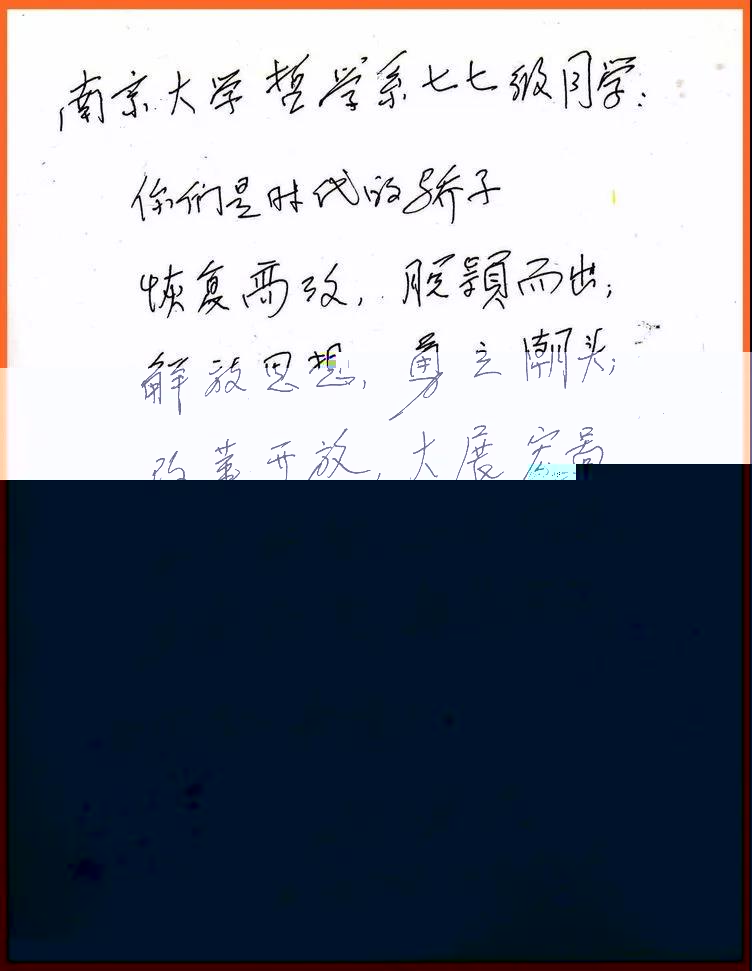 南京大学哲学系七七级同学：
你们是时代的骄子
恢复高考，脱颖而出；
解放思想，勇立潮头；
改革开放，大展宏图